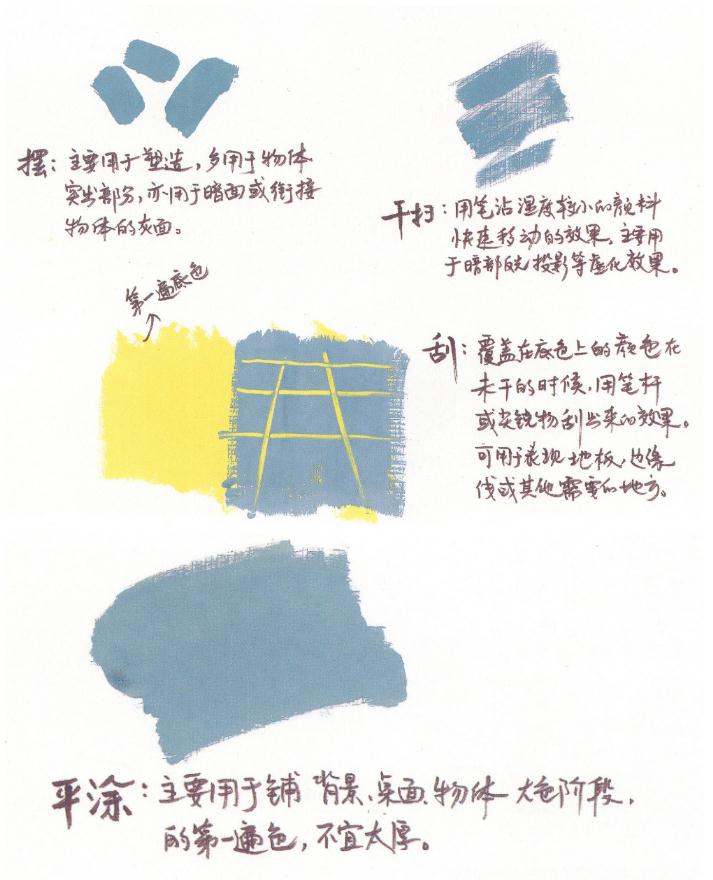 摆：主要用于塑造，多用于物体
突出部分，亦用于暗面或衔接
物体的灰面。
干扫：用笔沾湿度较小的颜料
快速移动的效果，主要用
于暗部或投影等虚化效果。
第一遍底色
刮：覆盖在底色上的颜色在
未干的时候，用笔杆
或尖锐物刮出来的效果。
可用于表现地板，边缘
线或其他需要的地方。
平涂：主要用于铺背景、桌面、物体大色阶段，
的第一遍色，不宜太厚。